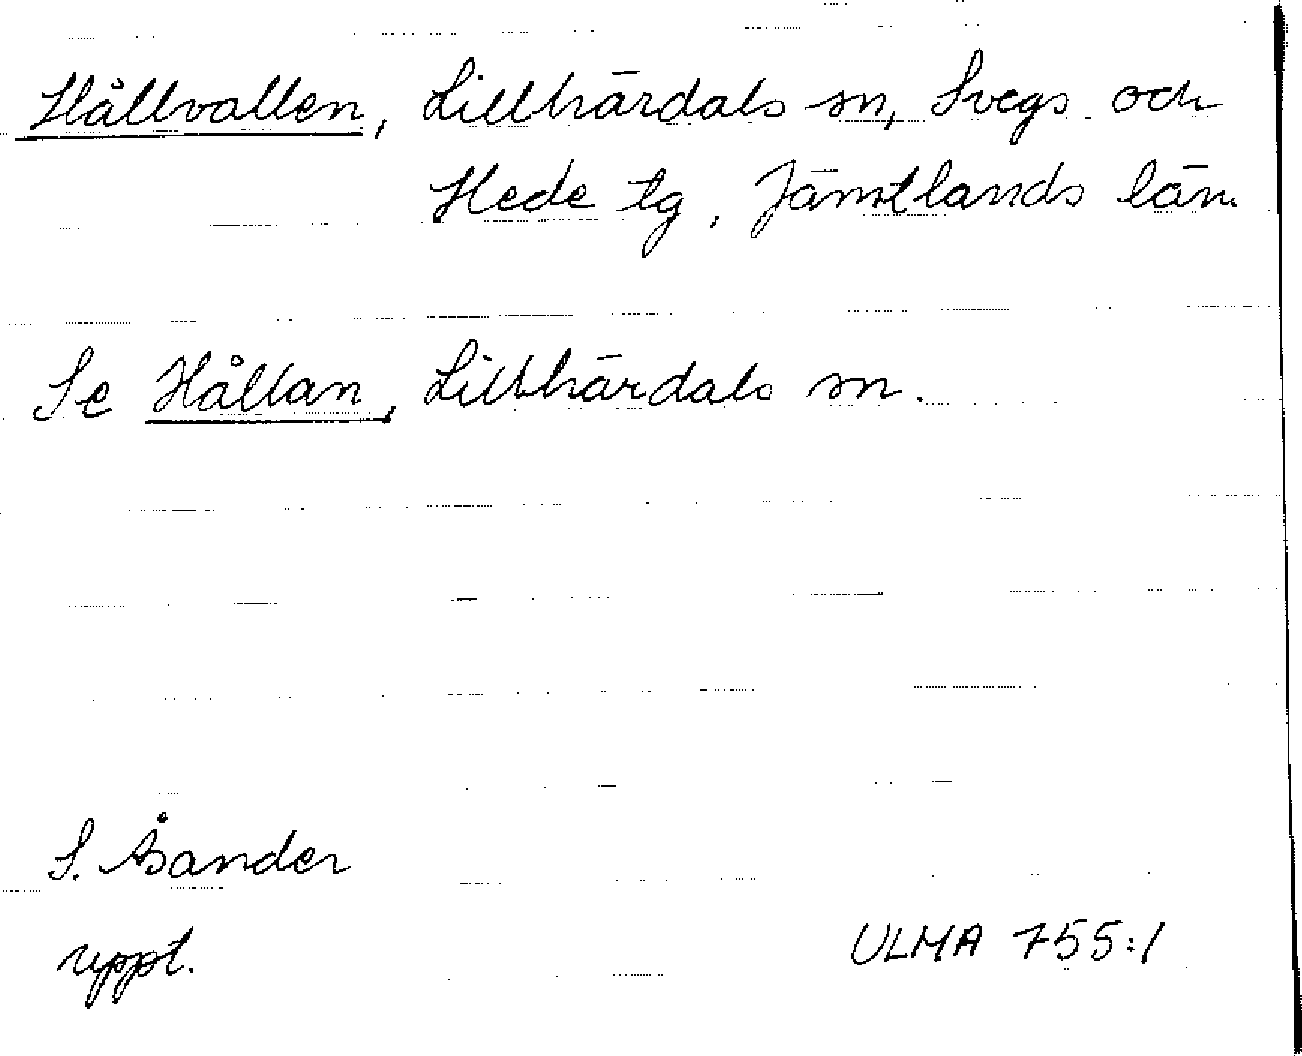 Hållvallen, Lillhärdals sn, Svegs och
Hede tg, Jämtlands län.
Se Hållan, Lillhärdals sn.
S. Åsander
uppt.
ULMA 755:1